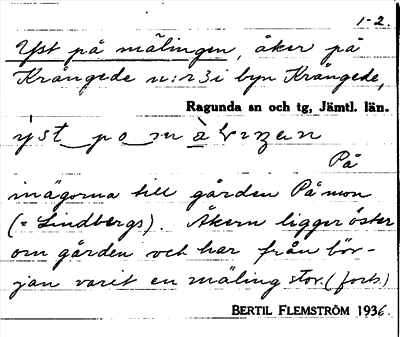 1-2.
Yst på mälingen, åker på
Krångede n:r 3 i byn Krångede,
Ragunda sn och tg, Jämtl. län.
På
inägorna till gården Påmon
(= Lindbergs). Åkern ligger öster
om gården och har från bör-
jan varit en mäling stor. (forts.)
BERTIL FLEMSTRÖM 1936.